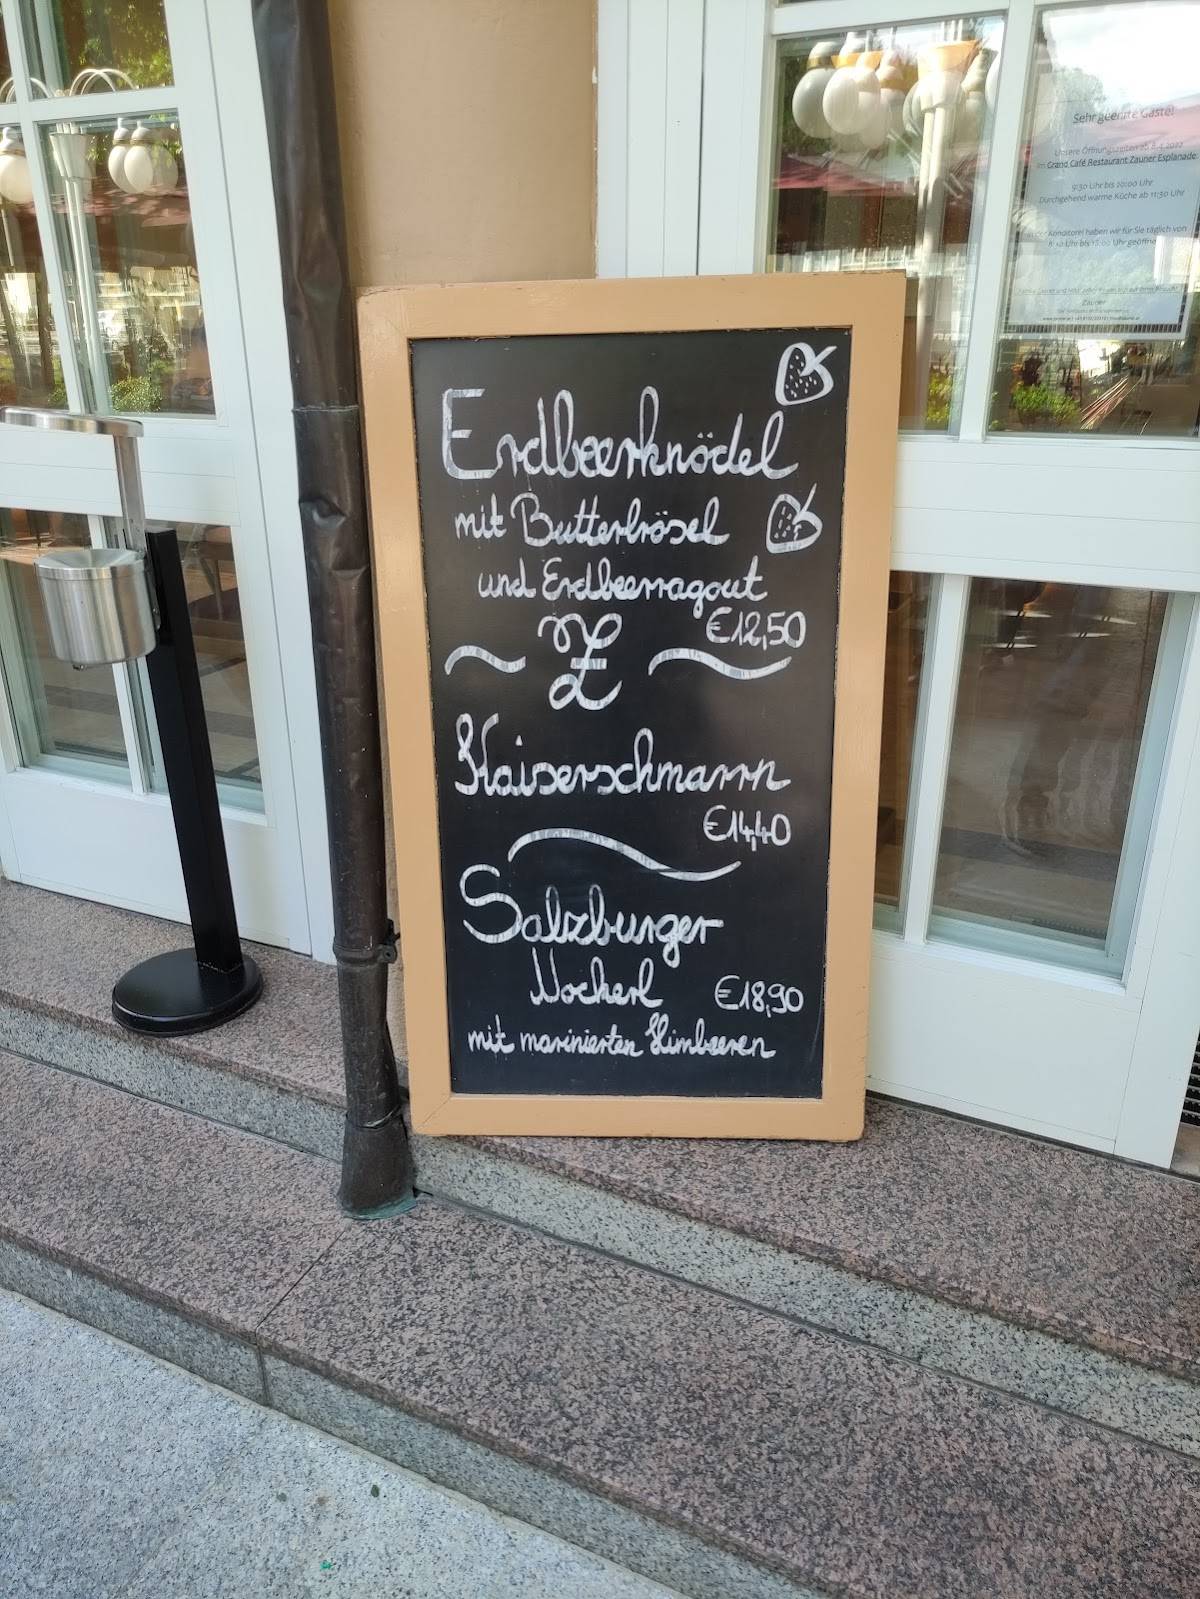 Erdbeerknödel
mit Butterbrösel
und Erdbeerragout
€12,50
Z
Kaiserschmarrn
€14,40
Salzburger
Nockerl €18,90
mit marinierten Himbeeren
Sehr geehrte Gäste!
Unsere Öffnungszeiten ab 8.4.2022
im Grand Café Restaurant Zauner Esplanade
9:30 Uhr bis 20:00 Uhr
Durchgehend warme Küche ab 11:30 Uhr
Konditorei haben wir für Sie täglich von
8:30 Uhr bis 18:00 Uhr geöffnet
Zauner